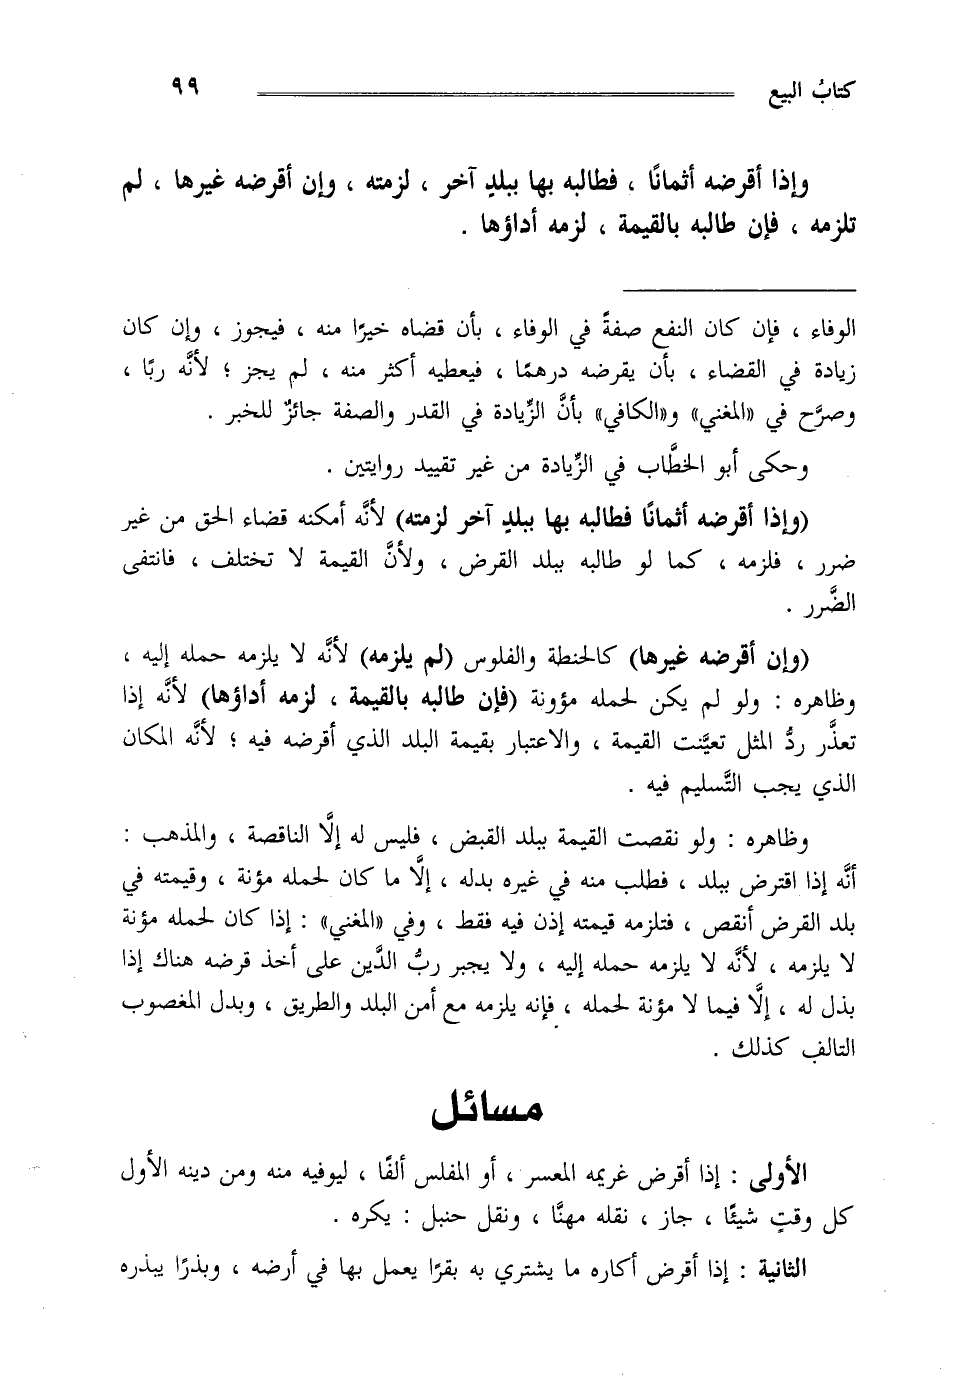 كتابُ البيع ٩٩
وإذا أقرضه أثمانًا ، فطالبه بها ببلدٍ آخر ، لزمته ، وإن أقرضه غيرها ، لم
تلزمه ، فإن طالبه بالقيمة ، لزمه أداؤها .
الوفاء ، فإن كان النفع صفةً في الوفاء ، بأن قضاه خيرًا منه ، فيجوز ، وإن كان
زيادة في القضاء ، بأن يقرضه درهمًا ، فيعطيه أكثر منه ، لم يجز ؛ لأنَّه ربًا ،
وصرَّح في «المغني» و«الكافي» بأنَّ الزِّيادة في القدر والصفة جائزٌ للخبر .
وحكى أبو الخطَّاب في الزِّيادة من غير تقييد روايتين .
(وإذا أقرضه أثمانًا فطالبه بها ببلدٍ آخر لزمته) لأنَّه أمكنه قضاء الحق من غير
ضرر ، فلزمه ، كما لو طالبه ببلد القرض ، ولأنَّ القيمة لا تختلف ، فانتفى
الضَّرر .
(وإن أقرضه غيرها) كالحنطة والفلوس (لم يلزمه) لأنَّه لا يلزمه حمله إليه ،
وظاهره : ولو لم يكن لحمله مؤونة (فإن طالبه بالقيمة ، لزمه أداؤها) لأنَّه إذا
تعذَّر ردُّ المثل تعيَّنت القيمة ، والاعتبار بقيمة البلد الذي أقرضه فيه ؛ لأنَّه المكان
الذي يجب التَّسليم فيه .
وظاهره : ولو نقصت القيمة ببلد القبض ، فليس له إلَّا الناقصة ، والمذهب :
أنَّه إذا اقترض ببلد ، فطلب منه في غيره بدله ، إلَّا ما كان لحمله مؤنة ، وقيمته في
بلد القرض أنقص ، فتلزمه قيمته إذن فيه فقط ، وفي «المغني» : إذا كان لحمله مؤنة
لا يلزمه ، لأنَّه لا يلزمه حمله إليه ، ولا يجبر ربُّ الدَّين على أخذ قرضه هناك إذا
بذل له ، إلَّا فيما لا مؤنة لحمله ، فإنه يلزمه مع أمن البلد والطريق ، وبدل المغصوب
التالف كذلك .
مسائل
الأولى : إذا أقرض غريمه المعسر ، أو المفلس ألفًا ، ليوفيه منه ومن دينه الأول
كل وقتٍ شيئًا ، جاز ، نقله مهنَّا ، ونقل حنبل : يكره .
الثانية : إذا أقرض أكاره ما يشتري به بقرًا يعمل بها في أرضه ، وبذرًا يبذره